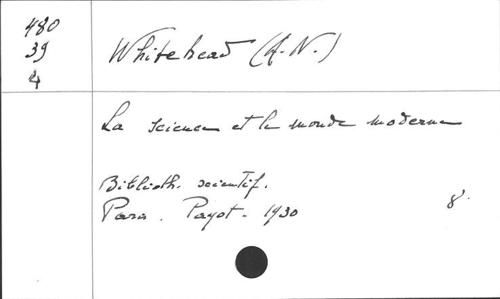 480
39
4
Whitehead (A.-N.)
La science et le monde moderne
Biblioth. scientif.
Paris. Payot - 1930
8°